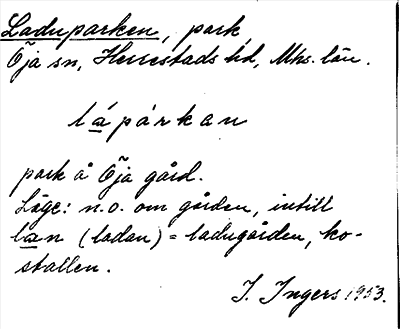 Laduparken, park
Öja sn, Herrestads hd, Mhs. län.
lápárkan
park å Öja gård.
Läge: n.o. om gården, intill
lan (ladan) = ladugården, ko-
stallen.
I. Ingers 1953.